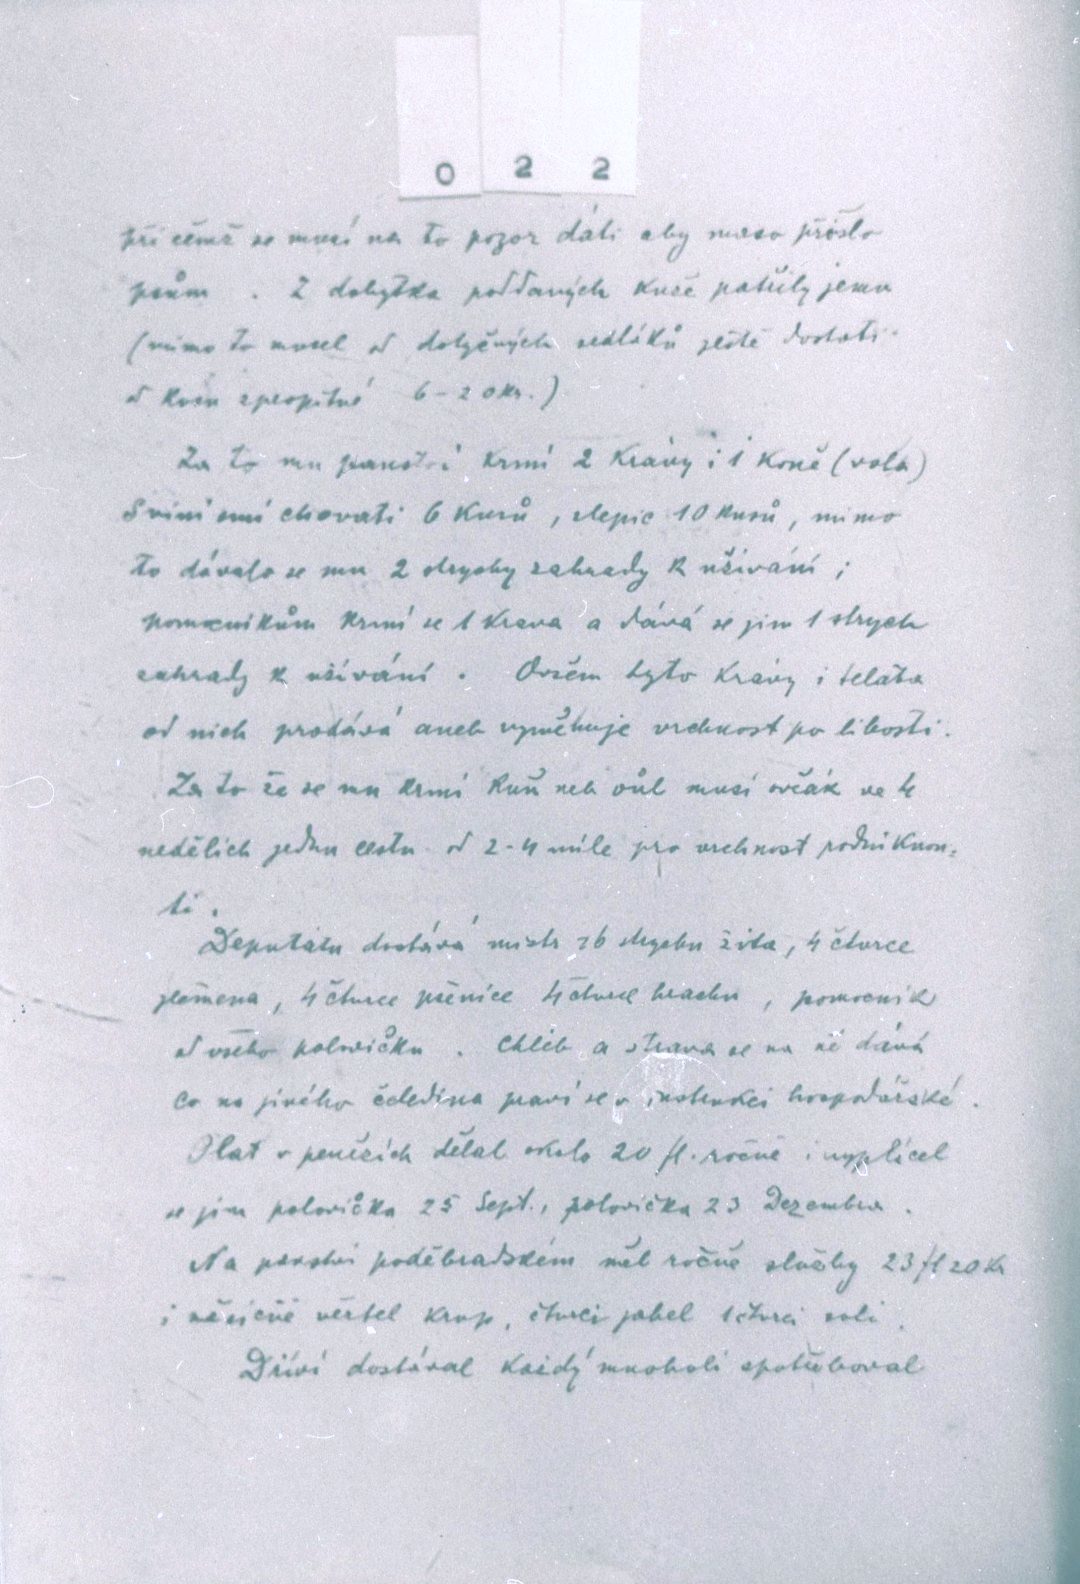 0 2 2
při čémž se musí na to pozor dáti aby maso přišlo
psům . Z dobytka poddaných kuže patřily jemu
(mimo to musel od dotyčných sedláků ještě dostati
od kusu zpropitné 6–20 Kr.)
Za to mu panství krmí 2 krávy i 1 koně (vola)
Sviní smí chovati 6 kusů , slepic 10 kusů , mimo
to dávalo se mu 2 strychy zahrady k užívání ;
pomocníkům krmí se 1 krava a dává se jim 1 strych
zahrady k užívání . Ovšem tyto krávy i telata
od nich prodává aneb vyměňuje vrchnost po libosti .
Za to že se mu krmí kuň neb vůl musí ovčák ve 4
nedělích jednu cestu od 2–4 míle pro vrchnost podniknou-
ti .
Deputátu dostává mistr 16 strychu žita , 4 čtvrce
ječmena , 4 čtvrce pšenice 4 čtvrce hrachu , pomocník
od všeho polovičku . Chléb a strava se na ně dává
co na jiného čeledína praví se v instrukci hospodářské .
Plat v penězích dělal okolo 20 fl. ročně i vyplácel
se jim polovička 25 Sept., polovička 23 Dezembra .
Na panství poděbradském měl ročně služby 23 fl 20 Kr
i měsíčně věrtel krup , čtvrci jahel 1 čtvrci soli .
Dříví dostával každý mnoholi spotřeboval